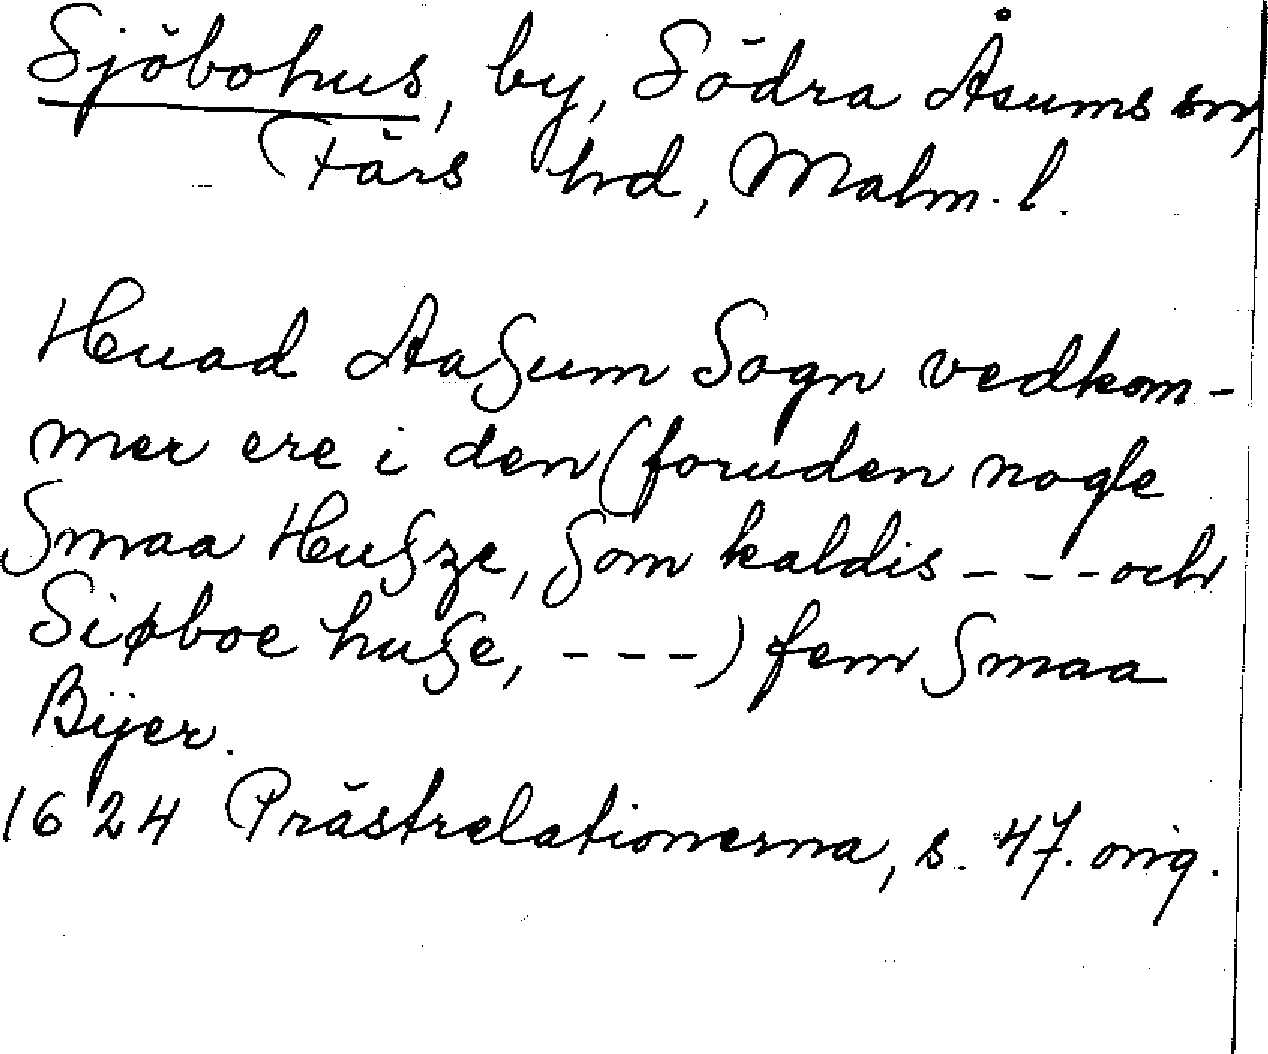 Sjöbohus, by, Södra Åsums sn,
Färs hrd, Malm. l.
Huad Aaſum Sogn vedkom-
mer ere i den (foruden nogle
Smaa Huſze, ſom kaldis - - - och
Siøboe huſe, - - -) fem Smaa
Bÿer.
1624 Prästrelationerna, s. 47. orig.